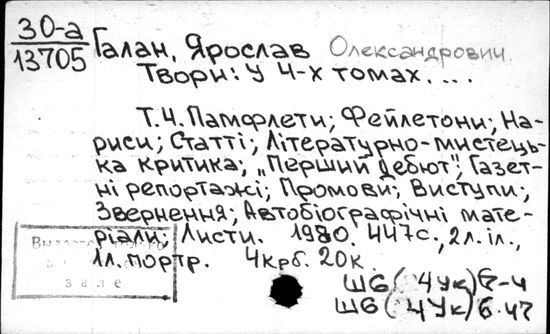 30-а
13705
Галан, Ярослав Олександрович
Твори: У 4-х томах. ...
Т.4. Памфлети; Фейлетони; На-
риси; Статті; Літературно-мистець-
ка критика; „Перший дебют"; Газет-
ні репортажі; Промови; Виступи;
Звернення; Автобіографічні мате-
ріали; Листи. 1980. 447с., 2л. іл.,
1л. портр. 4крб. 20к
зале
Ш6(4Ук)6-4
Ш6(4Ук)6.47